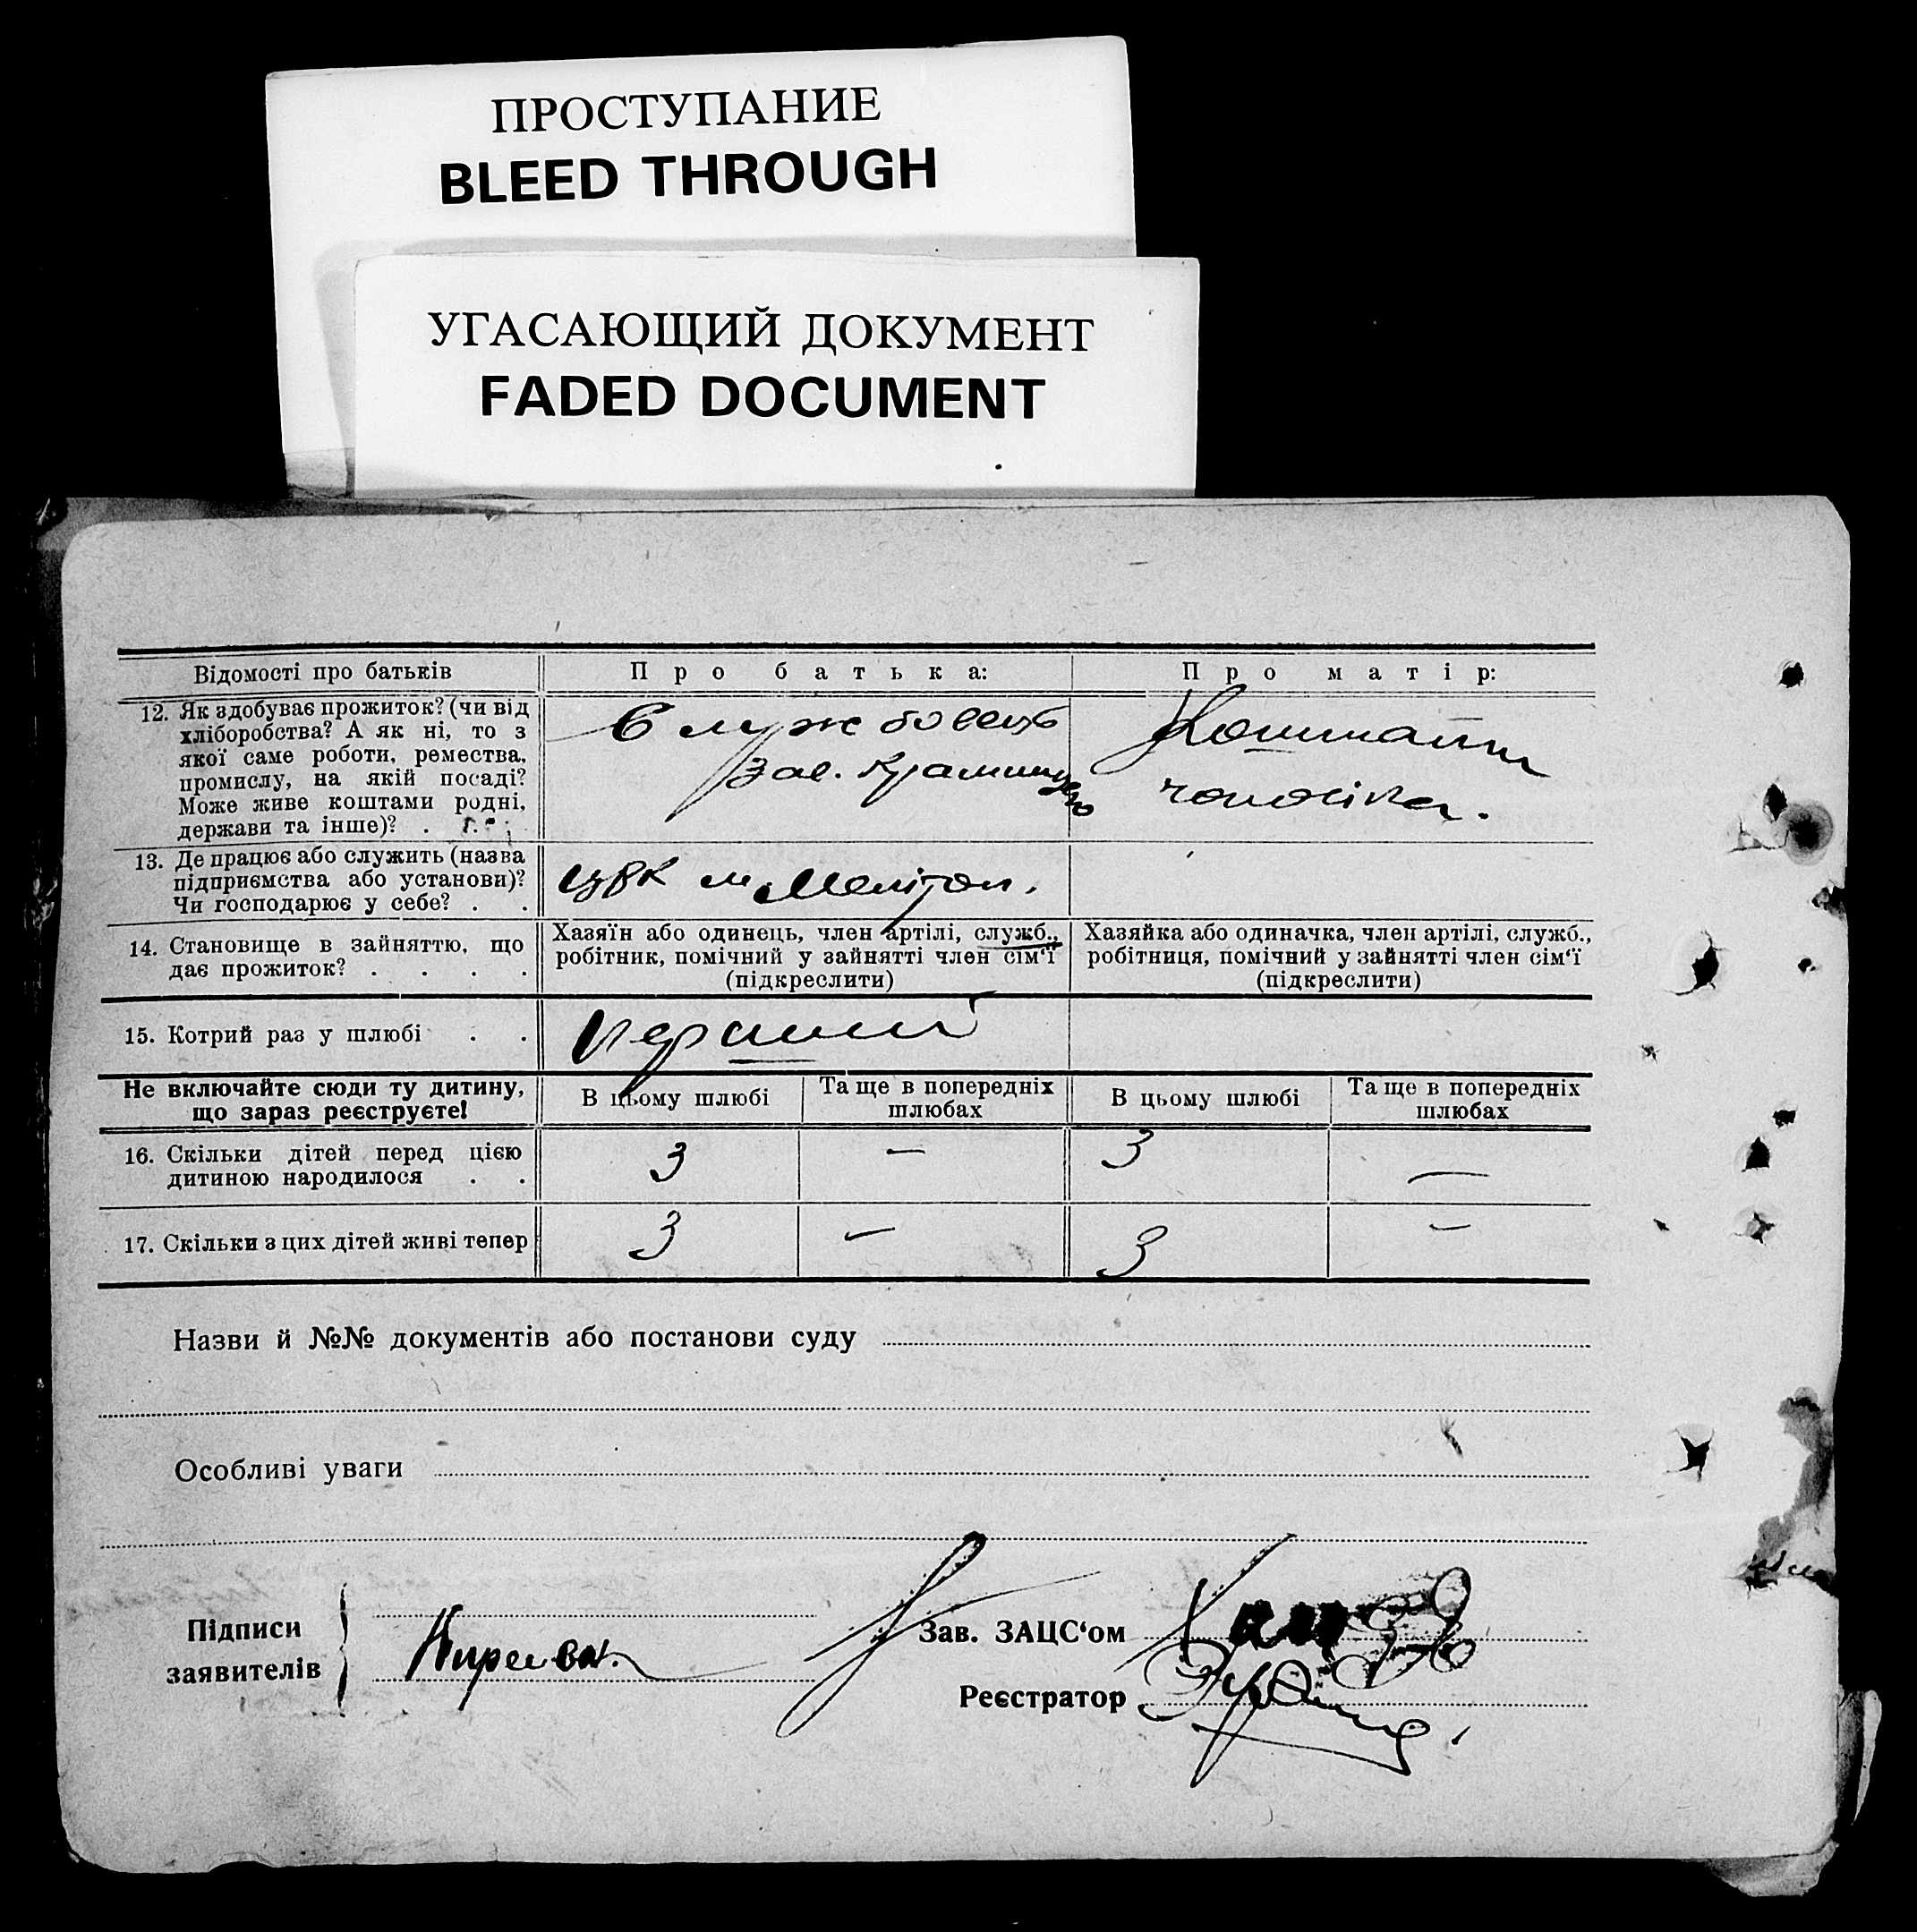 ПРОСТУПАНИЕ
BLEED THROUGH
УГАСАЮЩИЙ ДОКУМЕНТ
FADED DOCUMENT
Відомості про батьків
Про батька:
Про матір:
12. Як здобуває прожиток? (чи від
хліборобства? А як ні, то з
якої саме роботи, ремества,
промислу, на якій посаді?
Може живе коштами родні,
держави та інше)? .
Службовець
Зав. Крамницею
Коштами
чоловіка.
13. Де працює або служить (назва
підприємства або установи)?
Чи господарює у себе? . .
ЦРК м. Мелітоп.
14. Становище в зайняттю, що
дає прожиток? . . . .
Хазяїн або одинець, член артілі, служб.,
робітник, помічний у зайнятті член сім‘ї
(підкреслити)
Хазяйка або одиначка, член артілі, служб.,
робітниця, помічний у зайнятті член сім‘ї
(підкреслити)
15. Котрий раз у шлюбі . .
Перший
Не включайте сюди ту дитину,
що зараз реєструєте!
В цьому шлюбі
Та ще в попередніх
шлюбах
В цьому шлюбі
Та ще в попередніх
шлюбах
16. Скільки дітей перед цією
дитиною народилося . .
3 — 3 —
17. Скільки з цих дітей живі тепер
3 — 3 —
Назви й №№ документів або постанови суду
Особливі уваги
Підписи
заявителів
Зав. ЗАЦС‘ом
Реєстратор